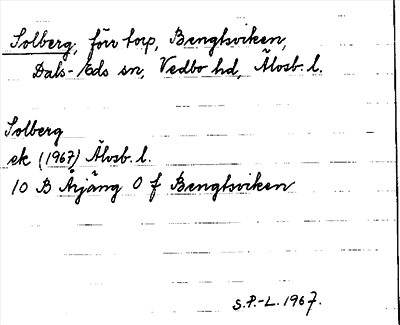 Solberg, förr torp, Bengtsviken,
Dals-Eds sn, Vedbo hd, Älvsb. l.
Solberg
ek (1967) Älvsb. l.
10 B Årjäng O f Bengtsviken
S.P.-L. 1967.